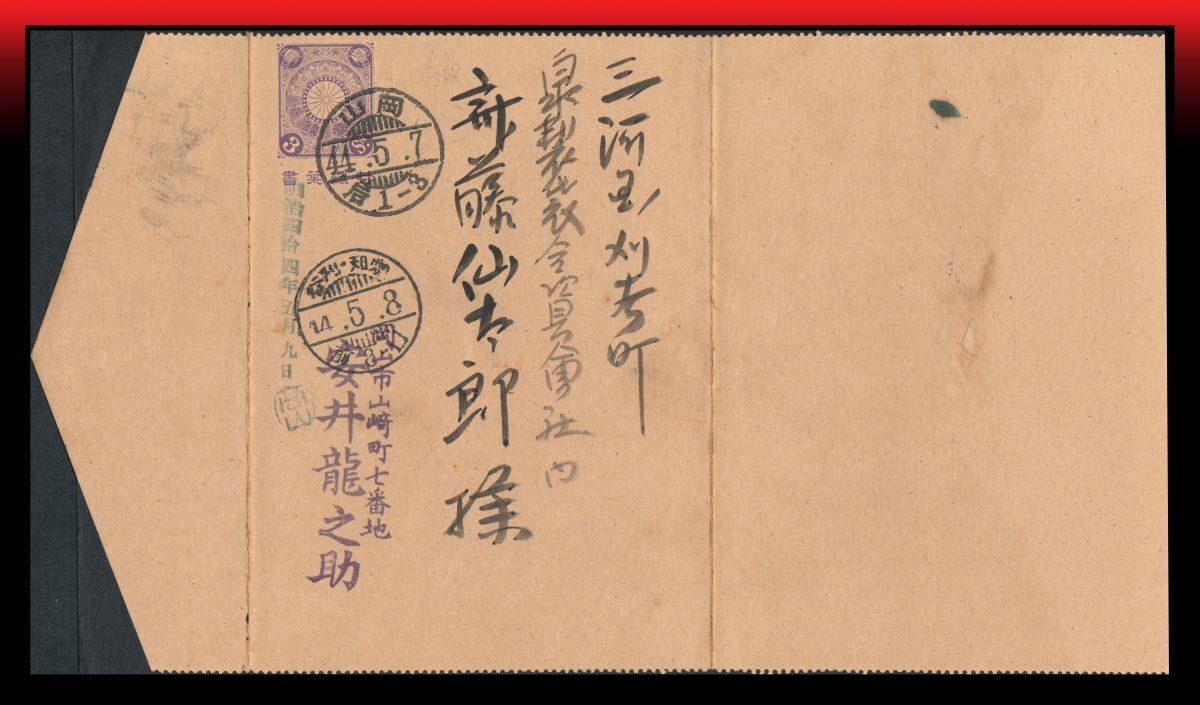 三河国刈谷町
合資會社内
藤仙太郎様
岡山市山崎町七番地
安井龍之助
明治四拾四年五月九日
3 Sⁿ
書葉
山岡
44.5.7
后1-3
刈・知愛
44.5.8
前